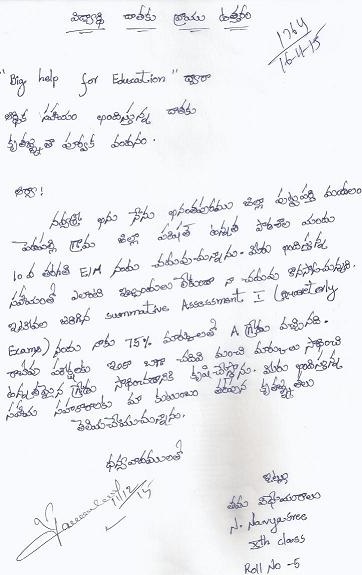 విద్యార్థి దాతకు వ్రాయు ఉత్తరం
1264
16-11-15
"Big help for Education" ద్వారా
ఆర్థిక సహాయం అందిస్తున్న దాతకు
కృతజ్ఞతా పూర్వక వందనం.
ఆర్యా!
నవ్యశ్రీ అను నేను అనంతపురము జిల్లా పుట్టపర్తి మండలం
గ్రామ జిల్లా పరిషత్ ఉన్నత పాఠశాల యందు
10 వ తరగతి E/M నందు చదువుచున్నాను. మీరు అందిస్తున్న
సహాయంతో ఎలాంటి ఇబ్బందులు లేకుండా నా చదువు కొనసాగుచున్నది.
ఇటీవల జరిగిన summative Assessment I (quarterly
Exams) నందు నాకు 75% మార్కులతో A గ్రేడు వచ్చినది.
రాబోవు పరీక్షలకు ఇంకా బాగా చదివి మంచి మార్కులు సాధించి
ఉన్నతమైన గ్రేడు సాధించడానికి కృషి చేస్తాను. మీరు అందిస్తున్న
సహాయ సహకారాలకు మా కుటుంబం తరపున కృతజ్ఞతలు
తెలియచేయుచున్నాను.
ధన్యవాదములతో
ఇట్లు
తమ విధేయురాలు
N. Navya Sree
Xth class
Roll No -5